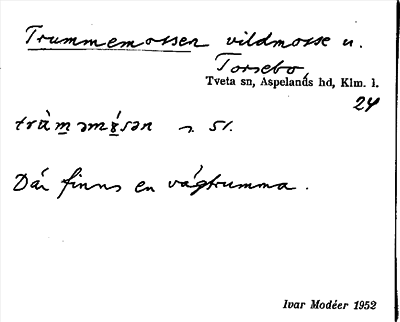 Trummemossen vildmosse u.
Torsebo
Tveta sn, Aspelands hd, Klm. l.
24
s. 51.
Där finns en vägtrumma.
Ivar Modéer 1952